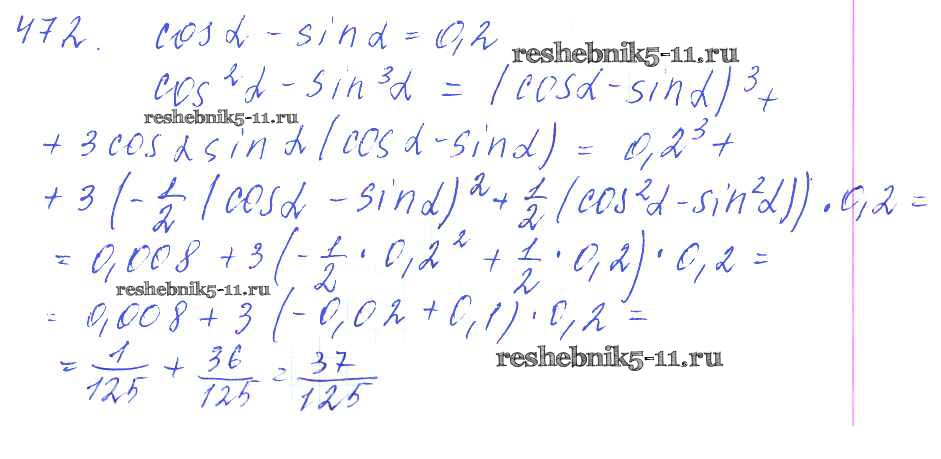 472. cosα - sinα = 0,2
reshebnik5-11.ru
cos²α - sin³α = (cosα - sinα)³ +
reshebnik5-11.ru
+ 3cosα sinα (cosα - sinα) = 0,2³ +
+ 3(-1/2 (cosα - sinα)² + 1/2 (cos²α - sin²α)) · 0,2 =
= 0,008 + 3(-1/2 · 0,2² + 1/2 · 0,2) · 0,2 =
reshebnik5-11.ru
= 0,008 + 3 (-0,02 + 0,1) · 0,2 =
reshebnik5-11.ru
= 1/125 + 36/125 = 37/125